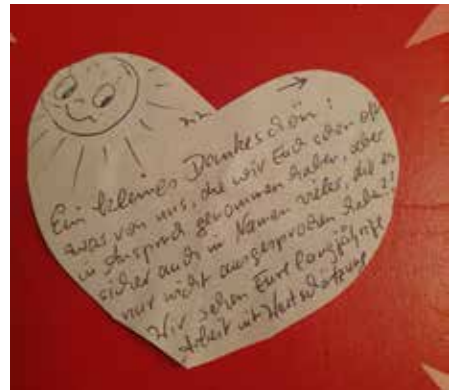 Ein kleines Dankeschön!
zwar von uns, die wir Euch schon oft
in Anspruch genommen haben, aber
sicher auch im Namen vieler, die es
nur nicht ausgesprochen haben!!
Wir sehen Eure langjährige
Arbeit mit Wertschätzung